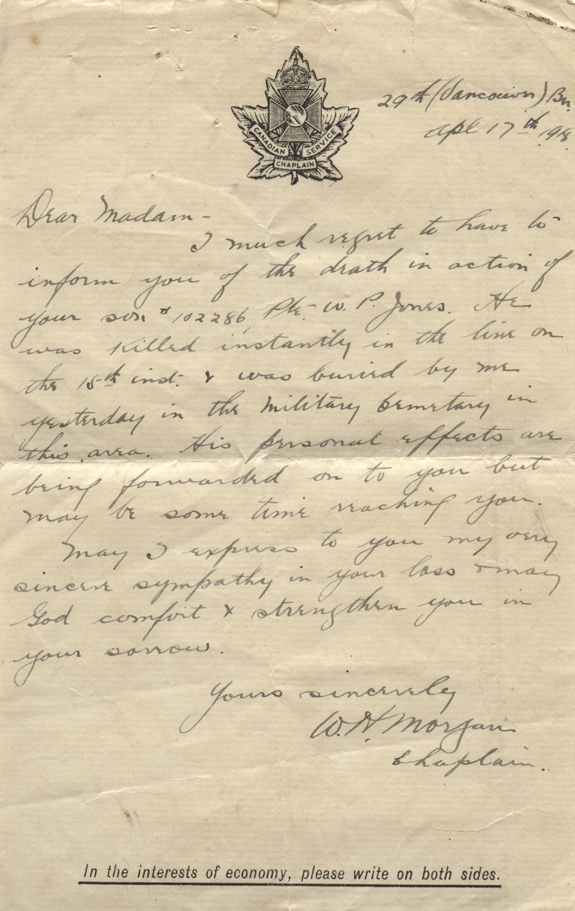 CANADIAN CHAPLAIN SERVICE
29th (Vancouver) Bn.
Apl 17th 1918
Dear Madam -
I much regret to have to
inform you of the death in action of
your son # 102286 Pte. W. P. Jones. He
was killed instantly in the line on
the 15th inst. & was buried by me
yesterday in the Military Cemetary in
this area. His personal effects are
being forwarded on to you but
may be some time reaching you.
May I express to you my very
sincere sympathy in your loss & may
God comfort & strengthen you in
your sorrow.
Yours sincerely
W. H. Morgan
Chaplain.
In the interests of economy, please write on both sides.